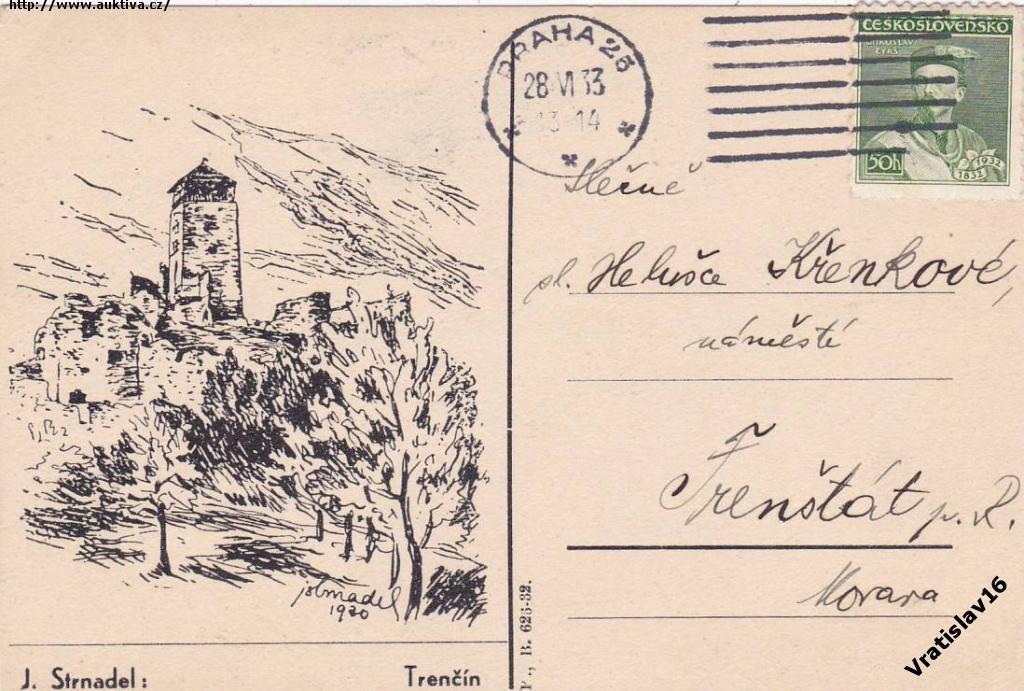 http://www.auktiva.cz/
PRAHA 25
28 VI 33
13-14
ČESKOSLOVENSKO
MIROSLAV
TYRŠ
50h
1932
1832
Slečně
sl. Helušce Křenkové,
náměstí
Frenštát p. R.
Morava
Strnadel
1930
J. Strnadel: Trenčín
B. 625-32.
Vratislav16